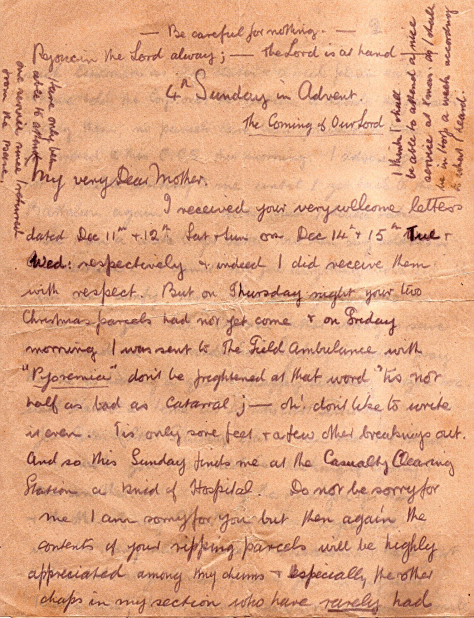 — Be careful for nothing. —
Rejoice in the Lord always; — the Lord is at hand —
4th Sunday in Advent.
The Coming of Our Lord
I think I shall
be able to attend a nice
service at Xmas. as I shall
be in Hosp a week according
to what I heard.
I have only been
able to attend
one service since I returned
from the Base.
My very Dear Mother.
I received your very welcome letters
dated Dec 11th & 12th Sat & Sun on Dec 14th & 15th Tue &
Wed: respectively & indeed I did receive them
with respect. But on Thursday night your two
Christmas parcels had not yet come & on Friday
morning I was sent to the Field Ambulance with
"Pyoremia" don't be frightened at that word 'tis not
half as bad as Catarral; — oh! don't like to write
it even. Tis only sore feet & a few other breakings out.
And so this Sunday finds me at the Casualty Clearing
Station a kind of Hospital Do not be sorry for
me I am sorry for you but then again the
contents of your ripping parcels will be highly
appreciated among my chums & especially the other
chaps in my section who have rarely had